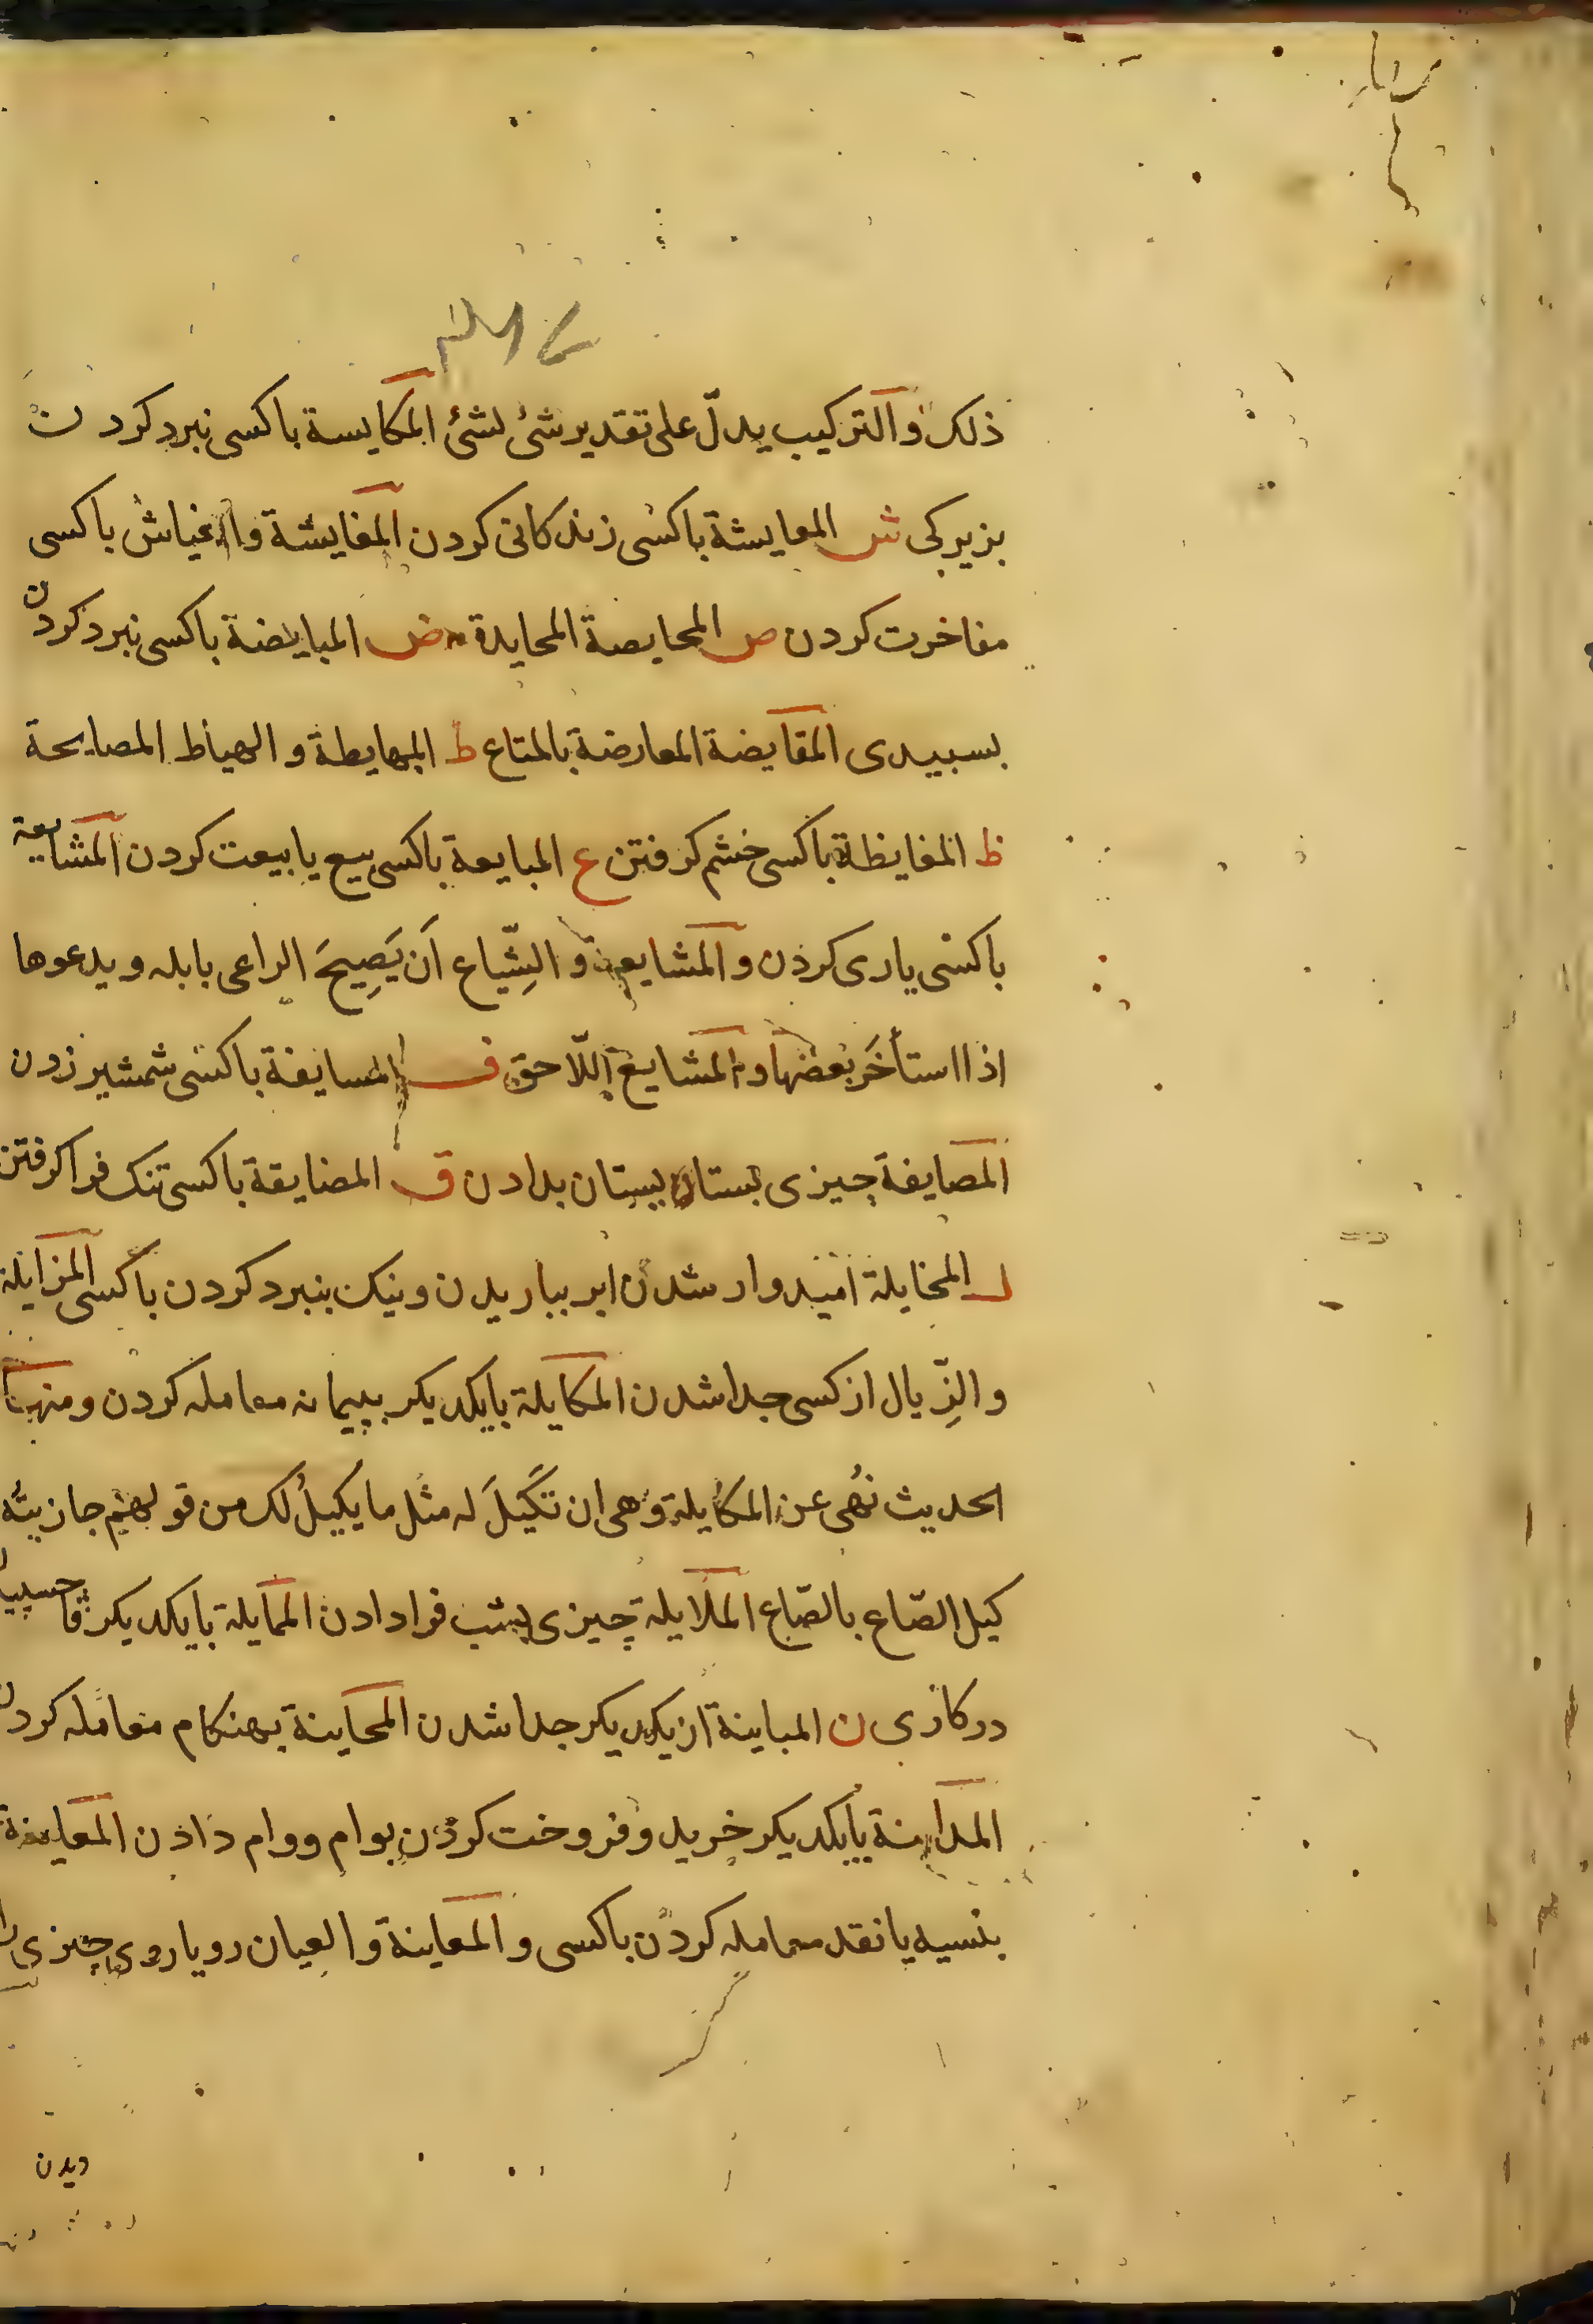 ذلک والترکیب یدلّ علی تقدیر شئ لشئ المکایسة باکسی نبرد کردن
بزیرکی ش المعایشة باکسی زندکانی کردن المغایشة والغیاش باکسی
مفاخرت کردن ص المحایصة المحایدة ض المبایضة باکسی نبرد کردن
بسبیدی المقایضة المعارضة بالمتاع ط المهایطة و الهیاط المصایحة
ظ المغایظة باکسی خشم کرفتن ع المبایعة باکسی بیع یا بیعت کردن المشایعة
باکسی یاری کردن و المشایعة و الشِّیاع اَن یَصِیحَ الراعی بابله و یدعوها
اذا استأخَر بعضها و المشایع اللّاحق ف المسایفة باکسی شمشیر زدن
المصایفة چیزی بتستان ببستان بدادن ق المضایقة باکسی تنک فرا کرفتن
ل المخایلة امیدوار شدن ابر بباریدن و نیک بنبرد کردن باکسی المزایلة
و الزِّیال از کسی جدا شدن المکایلة بایکدیکر بپیمانه معامله کردن و منه
الحدیث نُهی عن المکایلة وهی ان تَکیلَ له مثل ما یکیلُ لک من قولهم جازیته
کیل الصّاع بالصّاع الملایلة چیزی بشب فرا دادن الممایلة بایکدیکر
در کاری ن المباینة از یکدیکر جدا شدن المحاینة بهنکام معامله کردن
المداینة بایکدیکر خرید و فروخت کردن بوام و وام دادن المعاینة
بنسیه یا نقد معامله کردن باکسی و المعاینة و العیان رویاروی چیزی را
دیدن